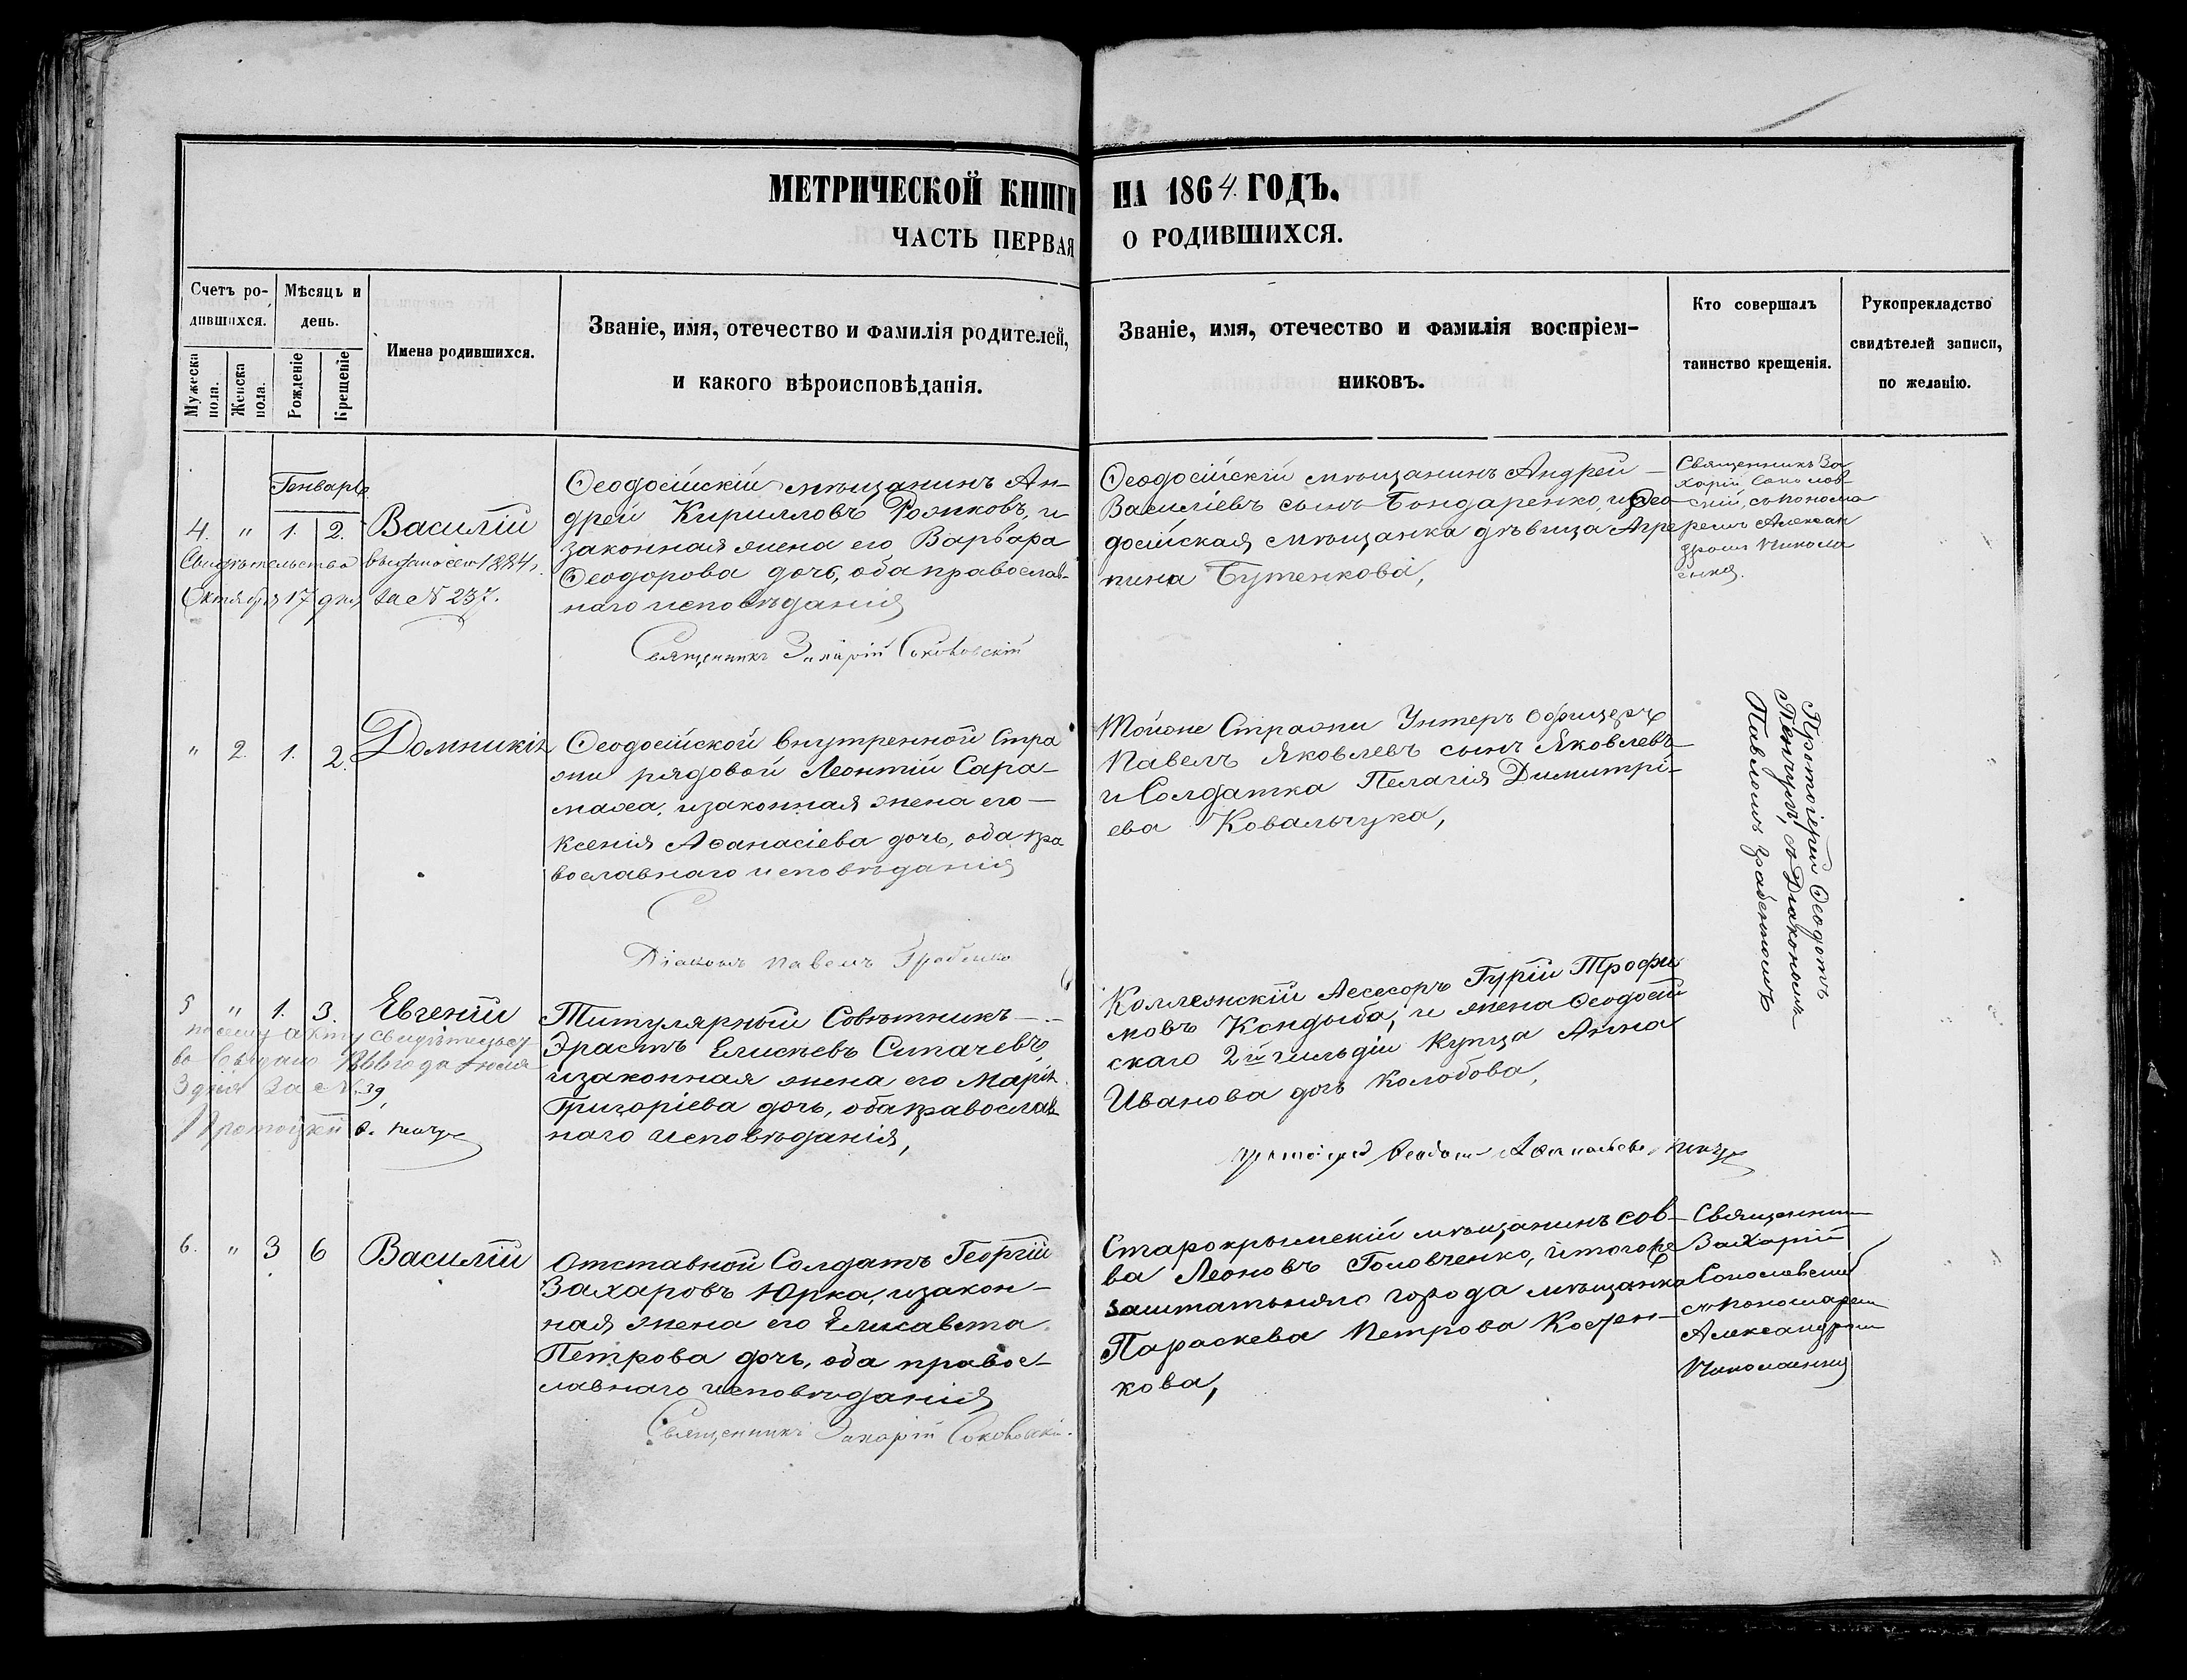 МЕТРИЧЕСКОЙ КНИГИ НА 1864. ГОДЪ.
ЧАСТЬ ПЕРВАЯ О РОДИВШИХСЯ.
Счетъ ро-
дившихся.
Мужеска
пола.
Женска
пола.
Мѣсяцъ и
день.
Рожденіе
Крещеніе
Имена родившихся.
Званіе, имя, отечество и фамилія родителей,
и какого вѣроисповѣданія.
Званіе, имя, отечество и фамилія воспріем-
никовъ.
Кто совершалъ
таинство крещенія.
Рукопрекладство
свидѣтелей записи,
по желанію.
Генварь
4. " 1. 2. Василій
Свидѣтельство выдано сего 1884,
Октября 17 дня за № 237.
Ѳеодосійскій мѣщанинъ Ан-
дрей Кирилловъ Рожковъ, и
законная жена его Варвара
Ѳеодорова дочь, оба православ-
наго исповѣданія
Священникъ Захарій Соколовскій
Ѳеодосійскій мѣщанинъ Андрей
Василіевъ сынъ Бондаренко, и Ѳео-
досійская мѣщанка дѣвица Агре
пина Бутенкова,
Священникъ За
харій Соколов-
скій, съ понома
ремъ Алексан
дромъ
" 2. 1. 2. Домникія
Ѳеодосійской внутренной Стра
жи рядовой Леонтій Сара-
маха, и законная жена его
Ксенія Аѳанасіева дочь, оба пра
вославнаго исповѣданія
Діаконъ Павелъ Грабенко
Тойже Стражи Унтеръ Офицеръ
Павелъ Яковлевъ сынъ Яковлевъ
и Солдатка Пелагія Димитрі-
ева Ковальчука,
Протоіерей Ѳеодотъ
съ Діакономъ
Павломъ Грабенкомъ
5 " 1. 3. Евгеній
по сему акту свидѣтельст
во выдано 1866 года Іюля
3 дня за №. 39,
Титулярный Совѣтникъ
Эрастъ Елисѣевъ Сипачевъ,
и законная жена его Марія
Григоріева дочь, оба православ
наго исповѣданія,
Коллежскій Асесоръ Гурій Трофи
мовъ Кондыба, и жена Ѳеодосій
скаго 2й гильдіи Купца Анна
Иванова дочь Колобова,
Протоіерей
6. " 3 6 Василій
Отставной Солдатъ Георгій
Захаровъ Юрка, и закон-
ная жена его Елисавета
Петрова дочь, оба правос-
лавнаго исповѣданія
Священникъ Захарій Соколовскій.
Старокрымскій мѣщанинъ Сов-
ва Леоновъ Головченко, и тогоже
заштатьнаго города мѣщанка
Параскева Петрова
кова,
Священникъ
Захарій
Соколовскій
съ пономаремъ
Александромъ